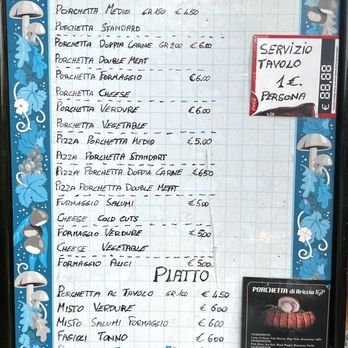 PORCHETTA MEDIO GR 150 € 4.50
PORCHETTA STANDARD
PORCHETTA DOPPIA CARNE GR 200 € 6.00
PORCHETTA DOUBLE MEAT
PORCHETTA FORMAGGIO € 6.00
PORCHETTA CHEESE
PORCHETTA VERDURE € 6.00
PORCHETTA VEGETABLE
PIZZA PORCHETTA MEDIO € 5.00
PIZZA PORCHETTA STANDART
PIZZA PORCHETTA DOPPIA CARNE € 6.50
PIZZA PORCHETTA DOUBLE MEAT
FORMAGGIO SALUMI € 5.00
CHEESE COLD CUTS
FORMAGGIO VERDURE € 5.00
CHEESE VEGETABLE
FORMAGGIO ALICI € 5.00
PIATTO
PORCHETTA AL TAVOLO GR 100 € 4.50
MISTO VERDURE € 6.00
MISTO SALUMI FORMAGGIO € 6.00
FAGIOLI TONNO € 6.00
SERVIZIO
TAVOLO
1 €.
PERSONA
€ 88,88
PORCHETTA di Ariccia IGP